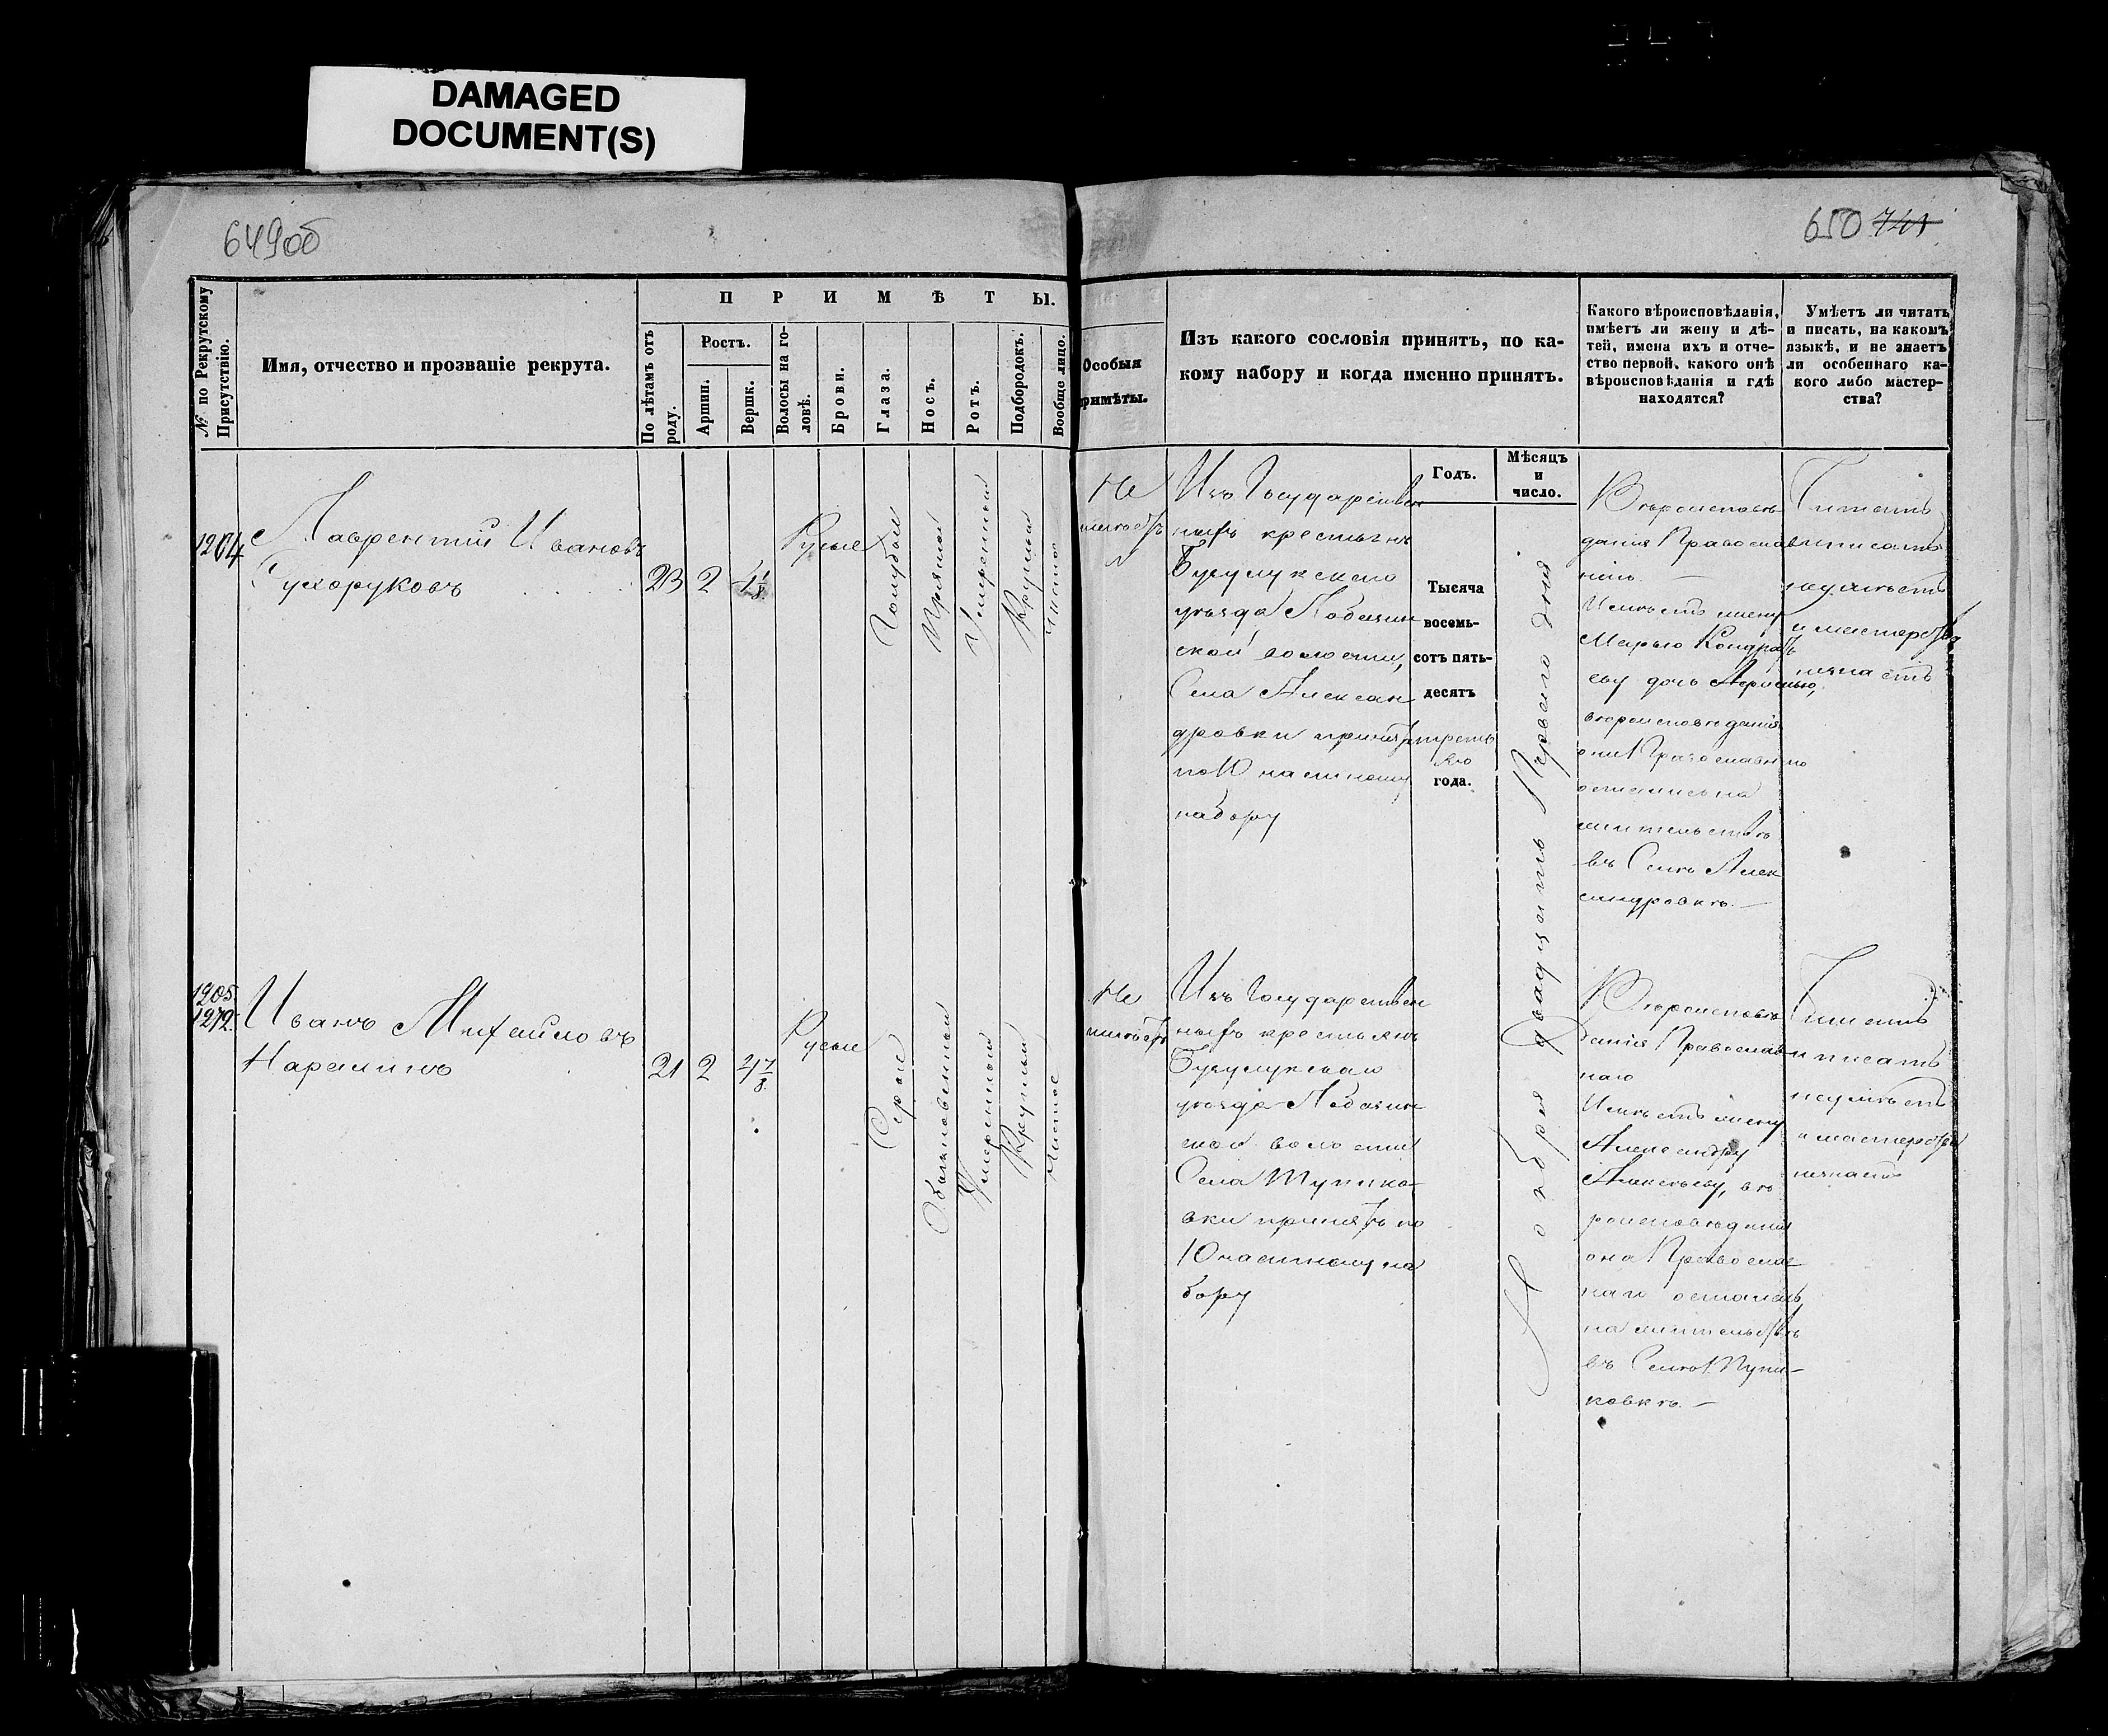 DAMAGED
DOCUMENT(S)
649об
650 741
№ по Рекрутскому
Присутствію.
Имя, отчество и прозваніе рекрута.
ПРИМѢТЫ.
По лѣтамъ отъ
роду.
Ростъ.
Аршин.
Вершк.
Волосы на го-
ловѣ.
Брови.
Глаза.
Носъ.
Ротъ.
Подбородокъ.
Вообще лицо.
Особыя
римѣты.
Изъ какого сословія принятъ, по ка-
кому набору и когда именно принятъ.
Какого вѣроисповѣданія,
имѣетъ ли жену и дѣ-
тей, имена ихъ и отче-
ство первой, какого онѣ
вѣроисповѣданія и гдѣ
находятся?
Умѣетъ ли читать
и писать, на какомъ
языкѣ, и не знаетъ
ли особеннаго ка-
кого либо мастер-
ства?
Годъ.
Мѣсяцъ
и
число.
1204
Лаврентій Ивановъ
Сухоруковъ
23
2
4 1/8
Русые
Голубые
Прямой
Умеренный
Круглый
Чистое
Не
имѣетъ
Изъ Государствен
ныхъ крестьянъ
Бугулукскаго
уѣзда Лобазин
ской волости,
Села Алексан
дровки принятъ
по 10 частному
набору
Тысяча
восемь-
сотъ пять-
десятъ
третьяго
года.
Ноября двадцать Перваго дня
Вѣроисповѣ
данія Православ
наго
Имѣетъ жену
Марью Кондрать
еву дочь
вѣроисповѣданія
они Православнаго
остались на
жительствѣ
въ Селѣ Алек
сандровкѣ.
Читать
и писать
неумѣетъ
и мастерства
незнаетъ
1205.
1212.
Иванъ Михайловъ
21
2
4 7/8
Русые
Серые
Обыкновенный
Умеренный
Круглый
Чистое
Не
имѣетъ
Изъ Государствен
ныхъ крестьянъ
Бугулукскаго
уѣзда Лобазин
ской волости
Села Тупико-
вки принятъ по
10 частному на
бору
Вѣроисповѣ
данія Православ
наго
Имѣетъ жену
Александру
Алексѣеву, вѣ
роисповѣданія
она Православ
наго осталась,
на жительствѣ
въ Селѣ Тупи-
ковкѣ.
Читать
и писать
неумѣетъ
и мастерства
незнаетъ